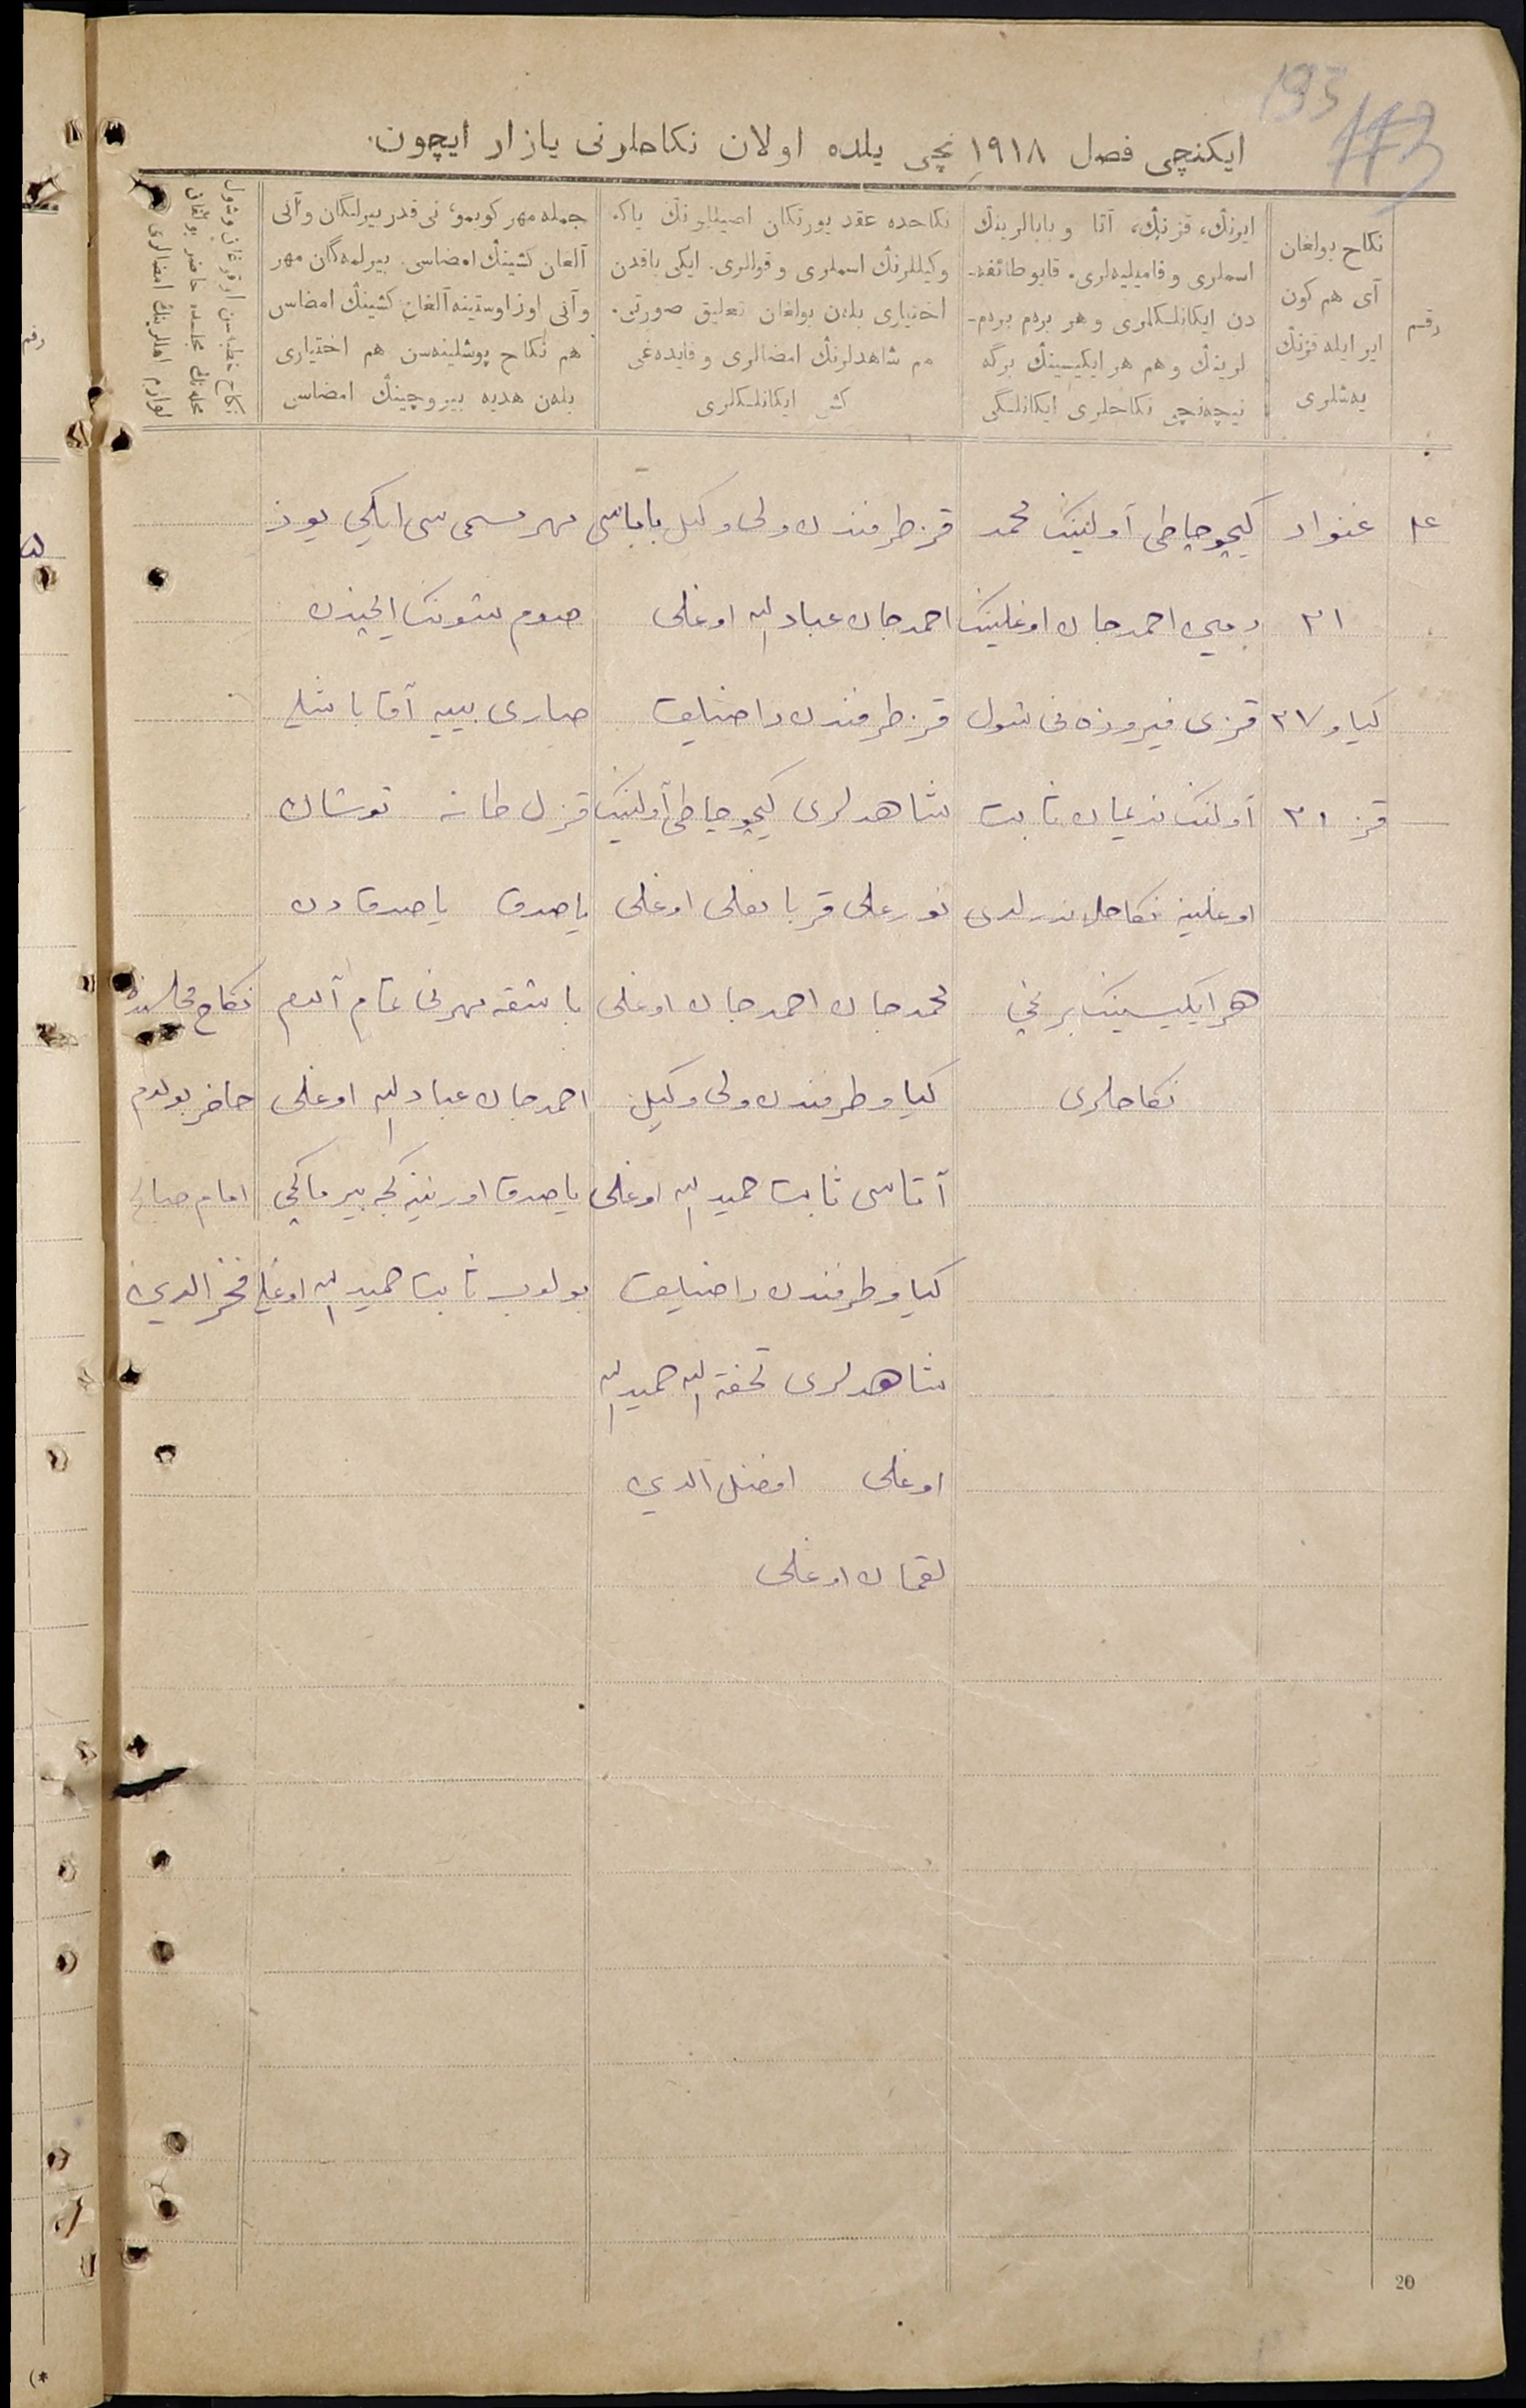 193
113
ایکنچی فصل ۱۹۱۸ نچی یلده اولان نکاحلرنی یازار ایچون.
رقم
نکاح بولغان
آی هم کون
ایر ایله قزنڭ
یەشلری
ایرنڭ، قزنڭ، آتا و بابالرینڭ
اسملری و فامیلیەلری. قایو طائفە-
دن ایکانلکلری و هر بردم بردم-
لرینڭ و هم هر ایکیسینڭ برگه
نیچەنچی نکاحلری ایکانلگی
نکاحده عقد یورتکان اصیللرنڭ یاکه
وکیللرنڭ اسملری و قوللری. ایکی یاقدن
اختیاری بلەن بولغان تعلیق صورتی.
هم شاهدلرنڭ امضالری و قایدەغی
کشی ایکانلکلری
جمله مهر کوبمو، نی قدر بیرلگان و آنی
آلغان کشینڭ امضاسی. بیرلمەگان مهر
و آنی اوز اوستینه آلغان کشینڭ امضاسی
هم نکاح پوشلینەسن هم اختیاری
بلەن هدیه بیروچینڭ امضاسی
نکاح خطبەسن اوقوغان و شول
مجلسده حاضر بولغان
امضالری
غنوار
۲۱
کیاو ۲۷
قز ۲۱
کیچو چاطی آولینڭ محمد
احمدجان اوغلینڭ
قزی فیروزه نی شول
آولنڭ نریمان ثابت
اوغلینه نکاحلاندرلدی
هر ایکیسینڭ برنچی
نکاحلری
قز طرفندن ولی وکیل باباسی
احمدجان عبادالله اوغلی
قز طرفندن راضیلق
شاهدلری کیچو چاطی آولینڭ
نورعلی قربانعلی اوغلی
محمدجان احمدجان اوغلی
کیاو طرفندن ولی وکیل
آتاسی ثابت حمیدالله اوغلی
کیاو طرفندن راضیلق
شاهدلری تحفةالله حمیدالله
اوغلی افضل الدین
لقمان اوغلی
مهر مسمی سی ایکی یوز
صوم شونڭ ایچندن
صاری بییه آقا باشلی
قزل طانه توشان
یاصدق یاصدقادن
باشقه مهرنی تمام آلدم
احمدجان عبادالله اوغلی
یاصدق اورنینه کجه بیرماکچی
بولوب ثابت حمیدالله اوغلی
نکاح مجلسنده
حاضر بولدم
امام صالح
فخرالدین
20